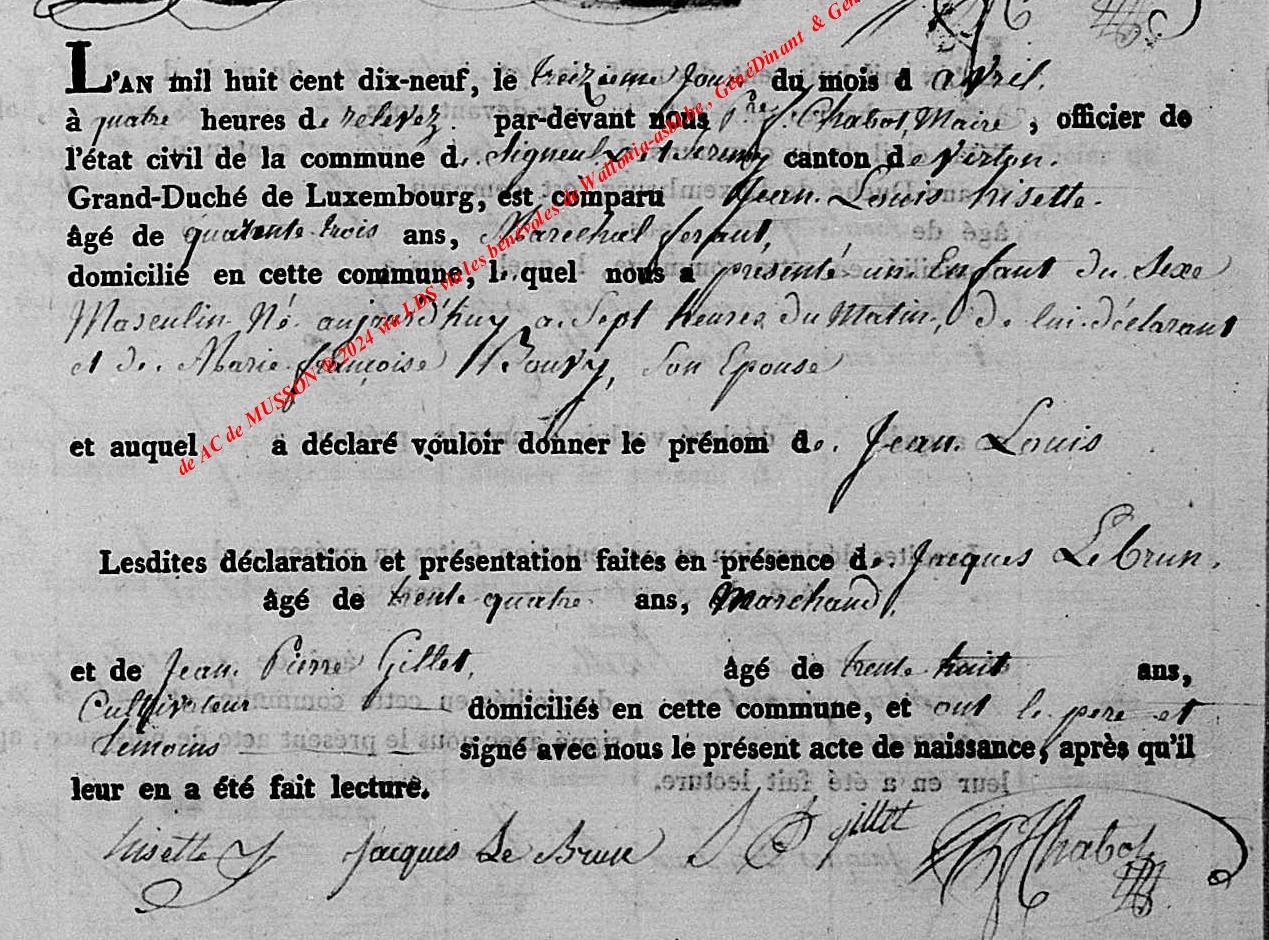 L'AN mil huit cent dix-neuf, le treizieme jour du mois d'avril.
à quatre heures de relevez. par-devant nous Chabot, Maire, officier de
l'état civil de la commune de Signeulx et canton de Virton.
Grand-Duché de Luxembourg, est comparu Jean. Louis hisette.
âgé de quarente trois ans, Marechal ferant,
domicilié en cette commune, lequel nous a présenté un Enfant du Sexe
Masculin Né aujourd'huy a Sept heures du Matin, de lui déclarant
et de Marie françoise Bouvy, Son Epouse
et auquel a déclaré vouloir donner le prénom de Jean Louis
Lesdites déclaration et présentation faites en présence de Jacques Lebrun.
âgé de trente quatre ans, Marchand,
et de Jean Pierre Gillet, âgé de trente huit ans,
Cultivateur domiciliés en cette commune, et ont le pere et
temoins signé avec nous le présent acte de naissance, après qu'il
leur en a été fait lecture.
hisette Jacques Le Brun gillet Chabot
de AC de MUSSON ® 2024 via LDS via les bénévoles de Wallonia-asbl.be, GénéDinant & Gen